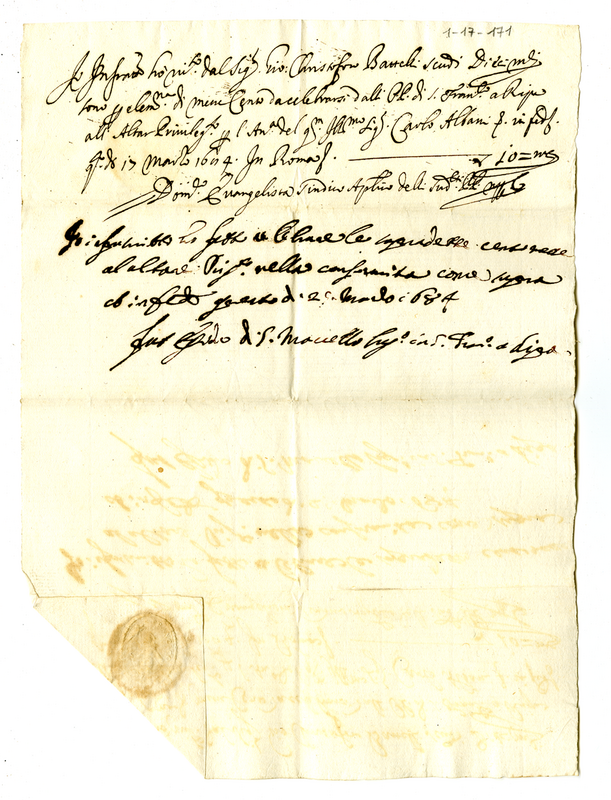 1-17-171
Io Infratto hò ric.to dal Sig.r Gio. Christoforo Battelli scudi Dieci m.ta
sono p elem.na di messe Cento da celebrarsi dalli PP. di S. Fran.co a Ripa
all' Altar Privileg.to p l'An.a del q.m Ill.mo Sig.r Carlo Albani in fede
q.to dì 17 Marzo 1684. In Roma
10=m.ta
Dom.co Evangelista Sindico Ap.lico delli sud.i
Io infrascritto ho fatto celebrare le sopradette cento messe
al altare nella conformita come sopra
in fede questo dì 2 Marzo 1684
fra di S. Marcello in S. Fran.o a Ripa